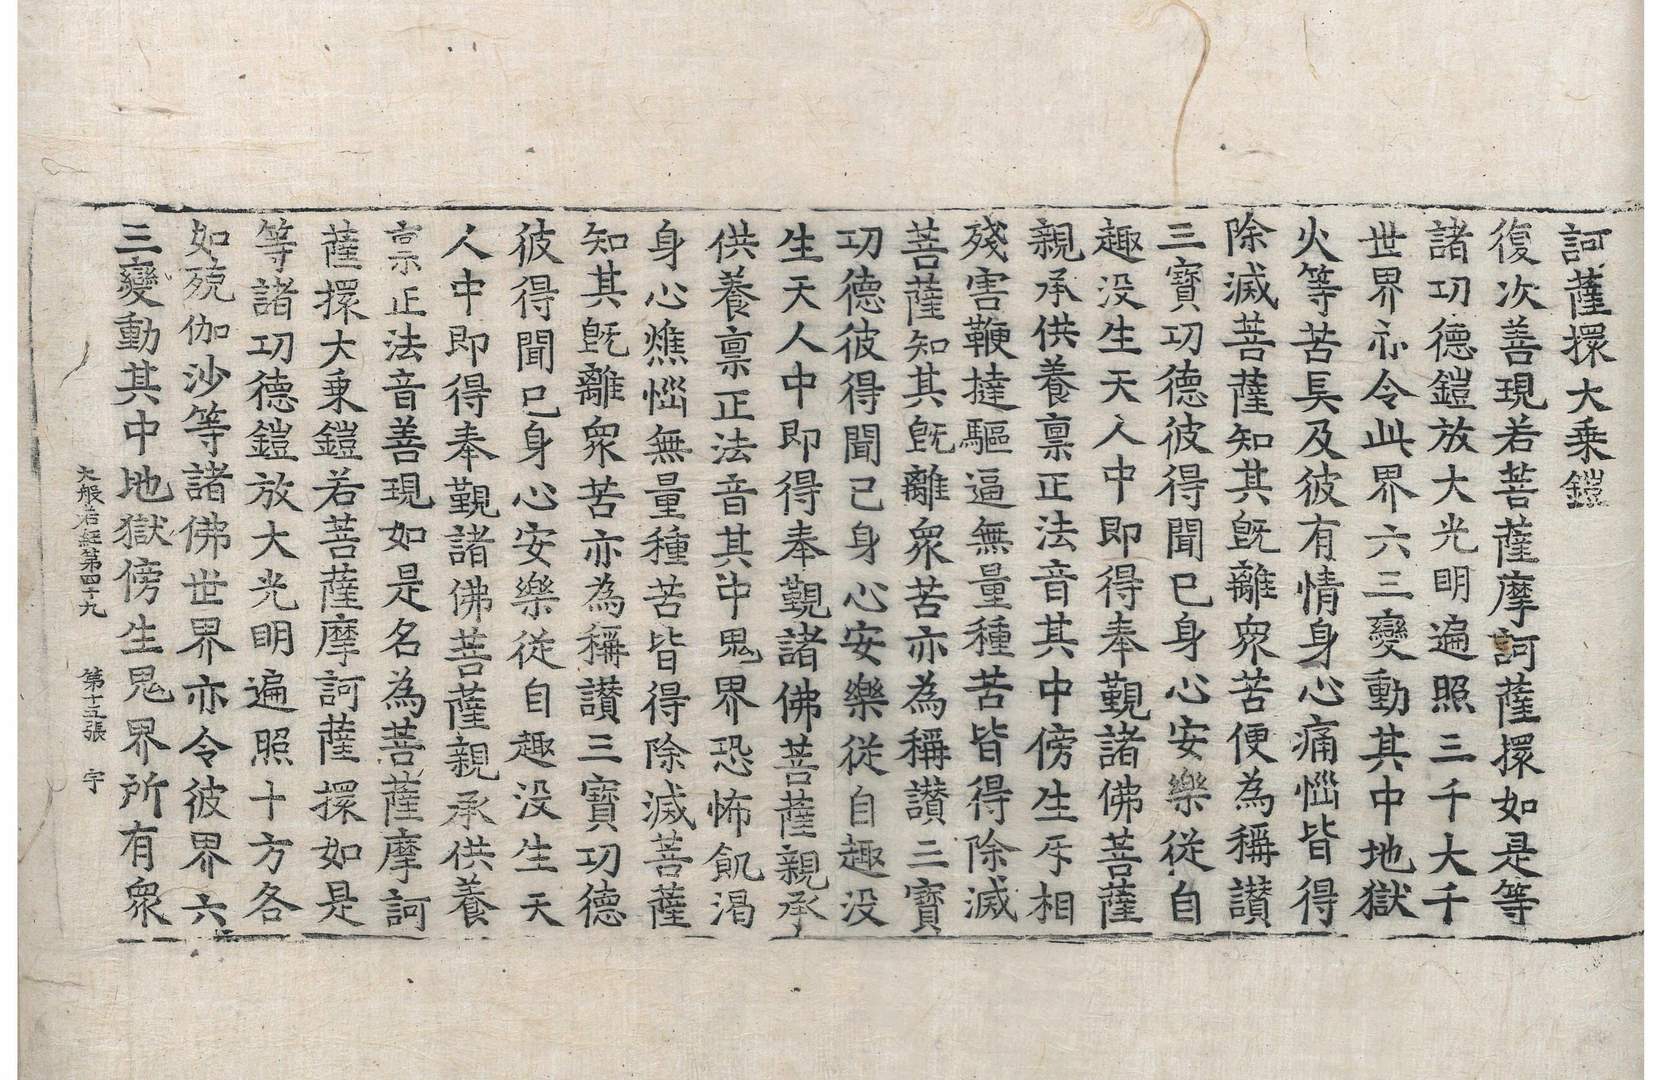 訶薩擐大乗鎧
復次善現若菩薩摩訶薩擐如是等
諸功德鎧放大光明遍照三千大千
世界亦令此界六三變動其中地獄
火等苦具及彼有情身心痛惱皆得
除滅菩薩知其旣離衆苦便為稱讃
三寳功德彼得聞已身心安樂從自
趣没生天人中即得奉覲諸佛菩薩
親承供養禀正法音其中傍生互相
殘害鞭撻驅逼無量種苦皆得除滅
菩薩知其旣離衆苦亦為稱讃三寳
功德彼得聞已身心安樂從自趣没
生天人中即得奉覲諸佛菩薩親承
供養禀正法音其中鬼界恐怖飢渴
身心燋惱無量種苦皆得除滅菩薩
知其旣離衆苦亦為稱讃三寳功德
彼得聞已身心安樂從自趣没生天
人中即得奉覲諸佛菩薩親承供養
禀正法音善現如是名為菩薩摩訶
薩擐大乗鎧若菩薩摩訶薩擐如是
等諸功德鎧放大光明遍照十方各
如殑伽沙等諸佛世界亦令彼界六
三變動其中地獄傍生鬼界所有衆
大般若經第四十九 第十五張 宇